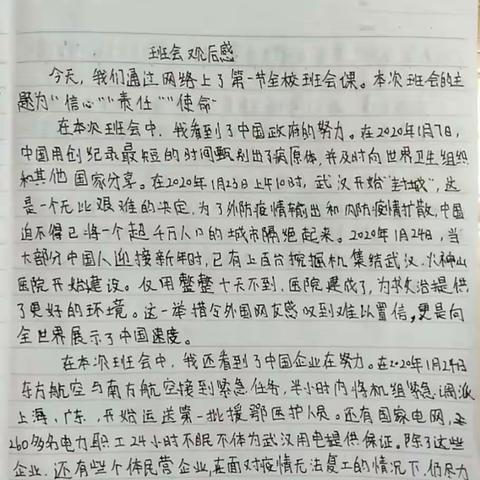 班会观后感
今天，我们通过网络上了第一节全校班会课。本次班会的主
题为“信心”“责任”“使命”
在本次班会中，我看到了中国政府的努力。在2020年1月7日，
中国用创纪录最短的时间甄别出了病原体，并及时向世界卫生组织
和其他国家分享。在2020年1月23日上午10时，武汉开始“封城”，这
是一个无比艰难的决定，为了外防疫情输出和内防疫情扩散，中国
迫不得已将一个超千万人口的城市隔绝起来。2020年1月24日，当
大部分中国人迎接新年时，已有上百台挖掘机集结武汉，火神山
医院开始建设。仅用整整十天不到，医院建成了，为救治提供
了更好的环境。这一举措令外国网友感叹到难以置信，更是向
全世界展示了中国速度。
在本次班会中，我还看到了中国企业在努力。在2020年1月24日
东方航空与南方航空接到紧急任务，半小时内将机组紧急调派
上海、广东，开始运送第一批援鄂医护人员。还有国家电网，
260多名电力职工24小时不眠不休为武汉用电提供保证。除了这些
企业，还有些个体民营企业，在面对疫情无法复工的情况下，仍尽力